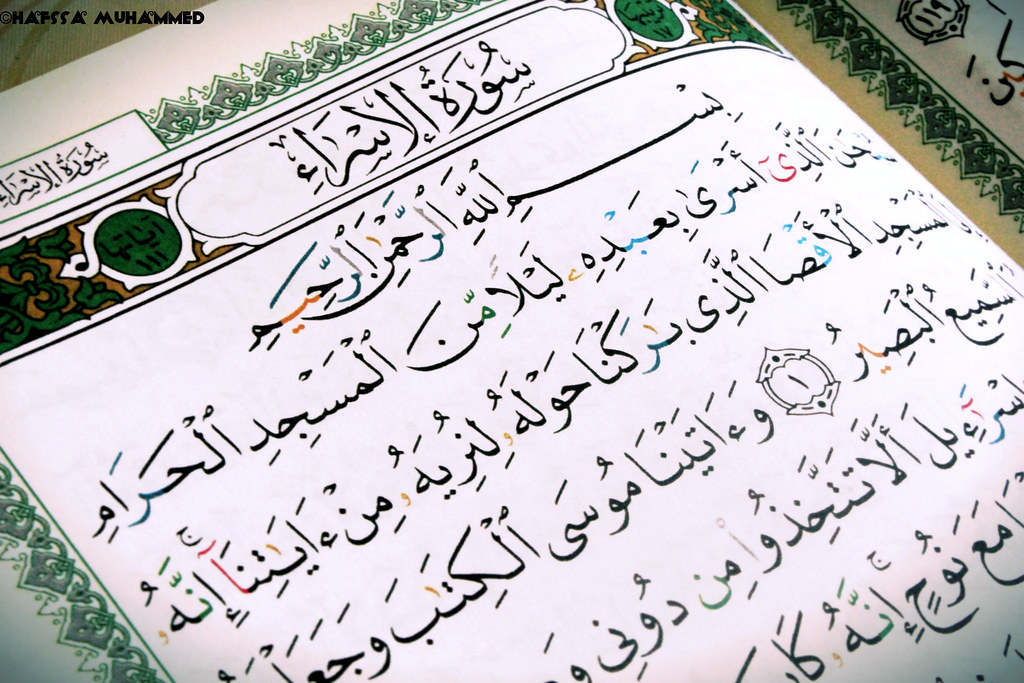 ©HAFSSA MUHAMMED
سُورَةُ الإِسْرَاءِ
سُورَةُ الإِسْرَاءِ
آياتها ١١١
بِسْمِ ٱللَّهِ ٱلرَّحْمَٰنِ ٱلرَّحِيمِ
ٱلَّذِىٓ أَسْرَىٰ بِعَبْدِهِۦ لَيْلًا مِّنَ ٱلْمَسْجِدِ ٱلْحَرَامِ
ٱلْمَسْجِدِ ٱلْأَقْصَا ٱلَّذِى بَٰرَكْنَا حَوْلَهُۥ لِنُرِيَهُۥ مِنْ ءَايَٰتِنَآ إِنَّهُۥ
ٱلسَّمِيعُ ٱلْبَصِيرُ ١ وَءَاتَيْنَا مُوسَى ٱلْكِتَٰبَ
إِسْرَٰٓءِيلَ أَلَّا تَتَّخِذُوا۟ مِن دُونِى
مَعَ نُوحٍ إِنَّهُۥ
١١٩